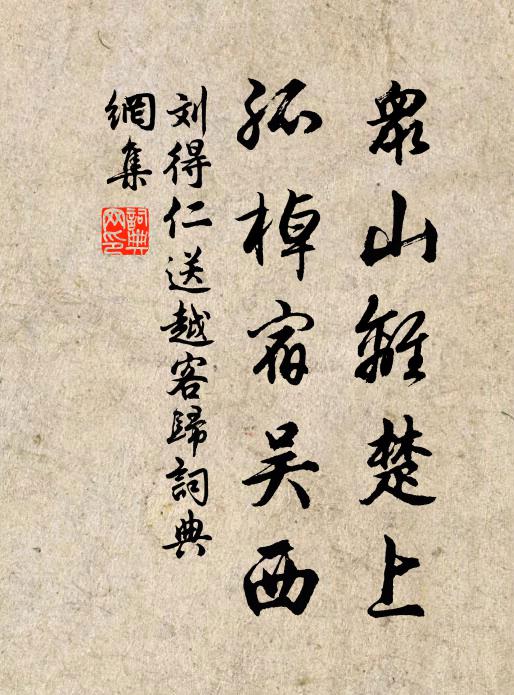 眾山離楚上
孤棹宿吴西
刘得仁送越客歸詞典
網集
詞典網印